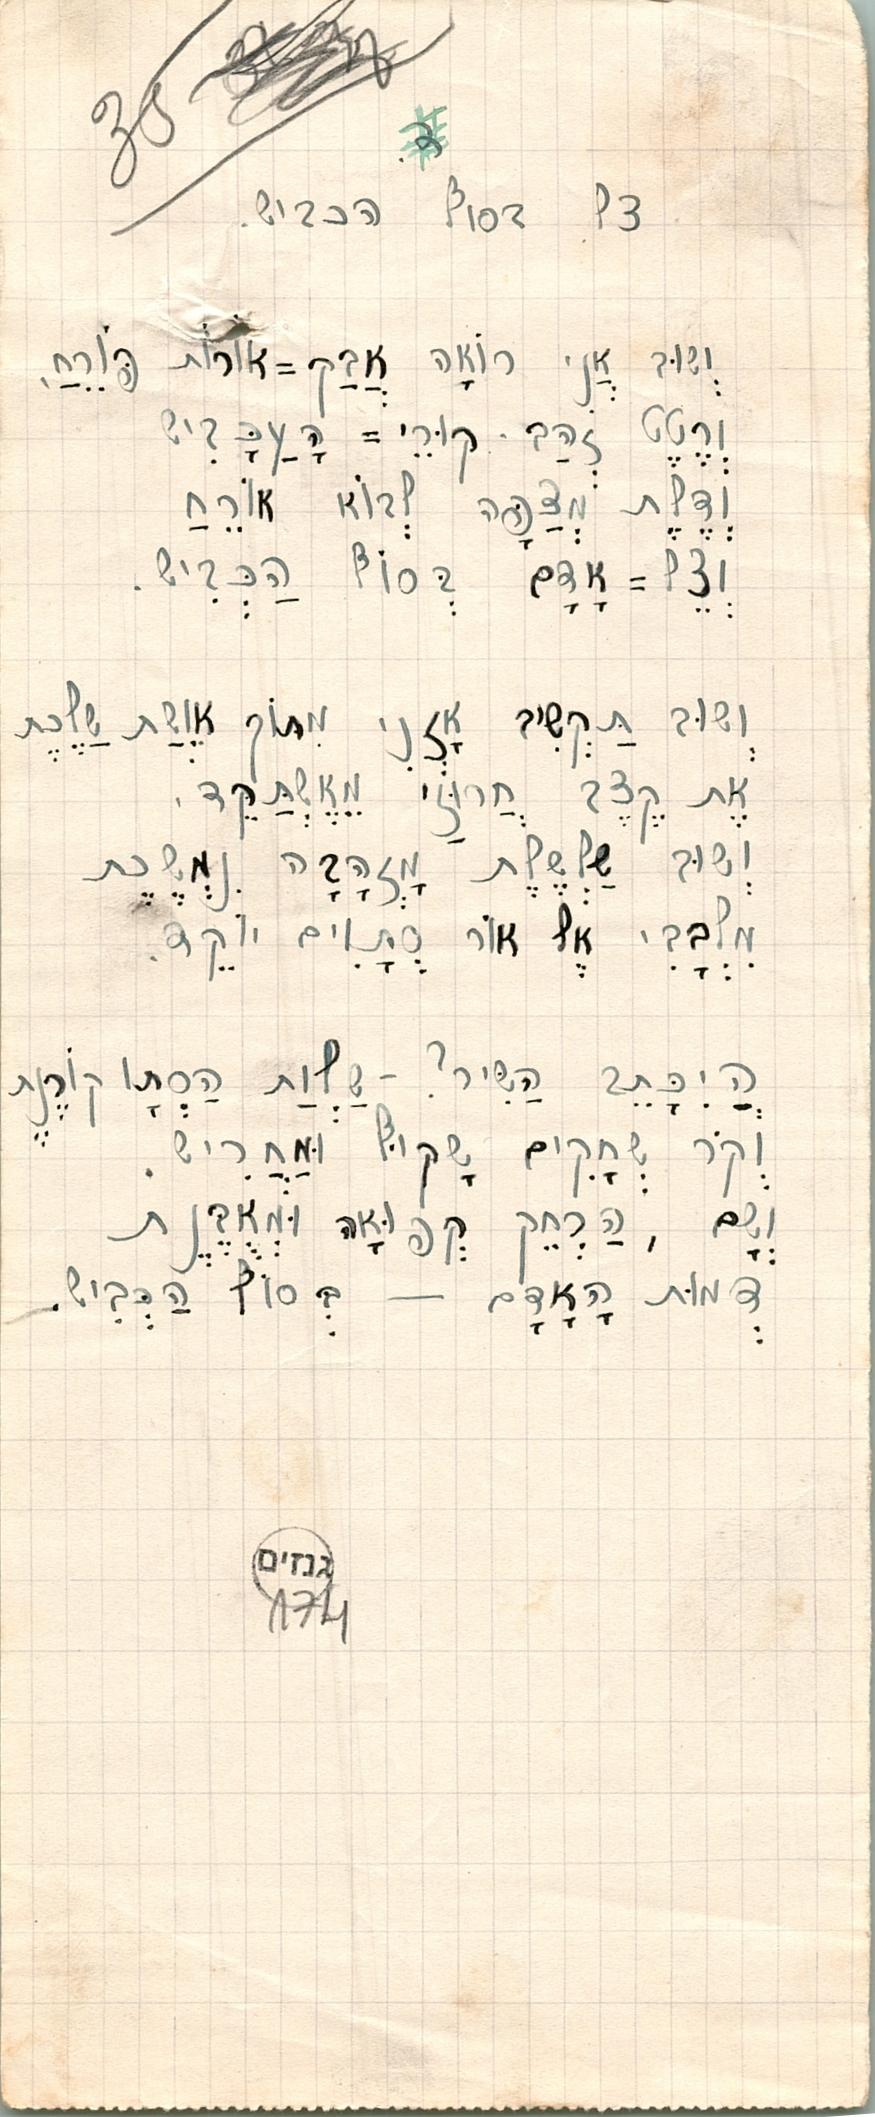 ב.
צל בסוף הכביש.
וְשׁוּב אֲנִי רוֹאָה אֲבַק=אוֹרוֹת פּוֹרֵחַ,
וְרֶטֶט זְהַב. קוּרֵי= הָעַכָּבִישׁ
וְדֶלֶת מְצַפָּה לְבוֹא אוֹרֵחַ
וְצֵל=אָדָם בְּסוֹף הַכְּבִישׁ.
וְשׁוּב תַּקְשִׁיב אָזְנִי מִתּוֹךְ אִוְשַׁת שַׁלֶּכֶת
אֶת קֶצֶב חֲרוּזַי מֵאֶשְׁתַּקֵד.
וְשׁוּב שַׁלְשֶׁלֶת מָזְהָבָה נִמְשֶׁכֶת
מִלְּבָבִי אֶל אוֹר סְתָוִים יוֹקֵד.
הֲיִכָּתֵב הַשִּׁיר? – שַׁלְוַת הַסְּתָו קוֹרֶנֶת
וְקֹר שְׁחָקִים שָׁקוּף וּמַחֲרִישׁ.
וְשָׁם, הַרְחֵק קְפוּאָה וּמְאֻבֶּנֶת
דְּמוּת הָאָדָם — בְּסוֹף הַכְּבִישׁ.
גנזים
174